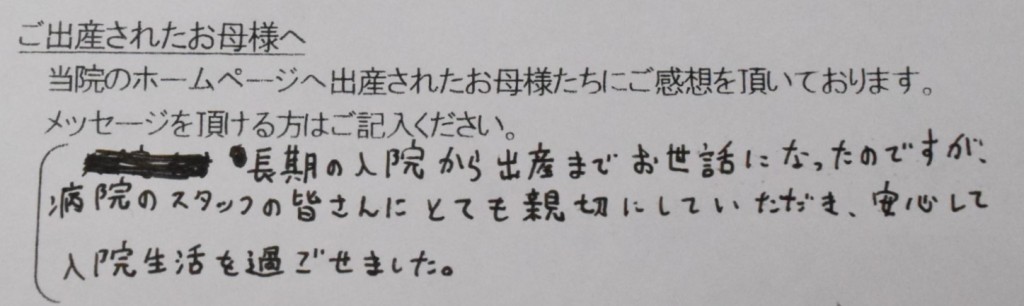 ご出産されたお母様へ
当院のホームページへ出産されたお母様たちにご感想を頂いております。
メッセージを頂ける方はご記入ください。
長期の入院から出産までお世話になったのですが、
病院のスタッフの皆さんにとても親切にしていただき、安心して
入院生活を過ごせました。